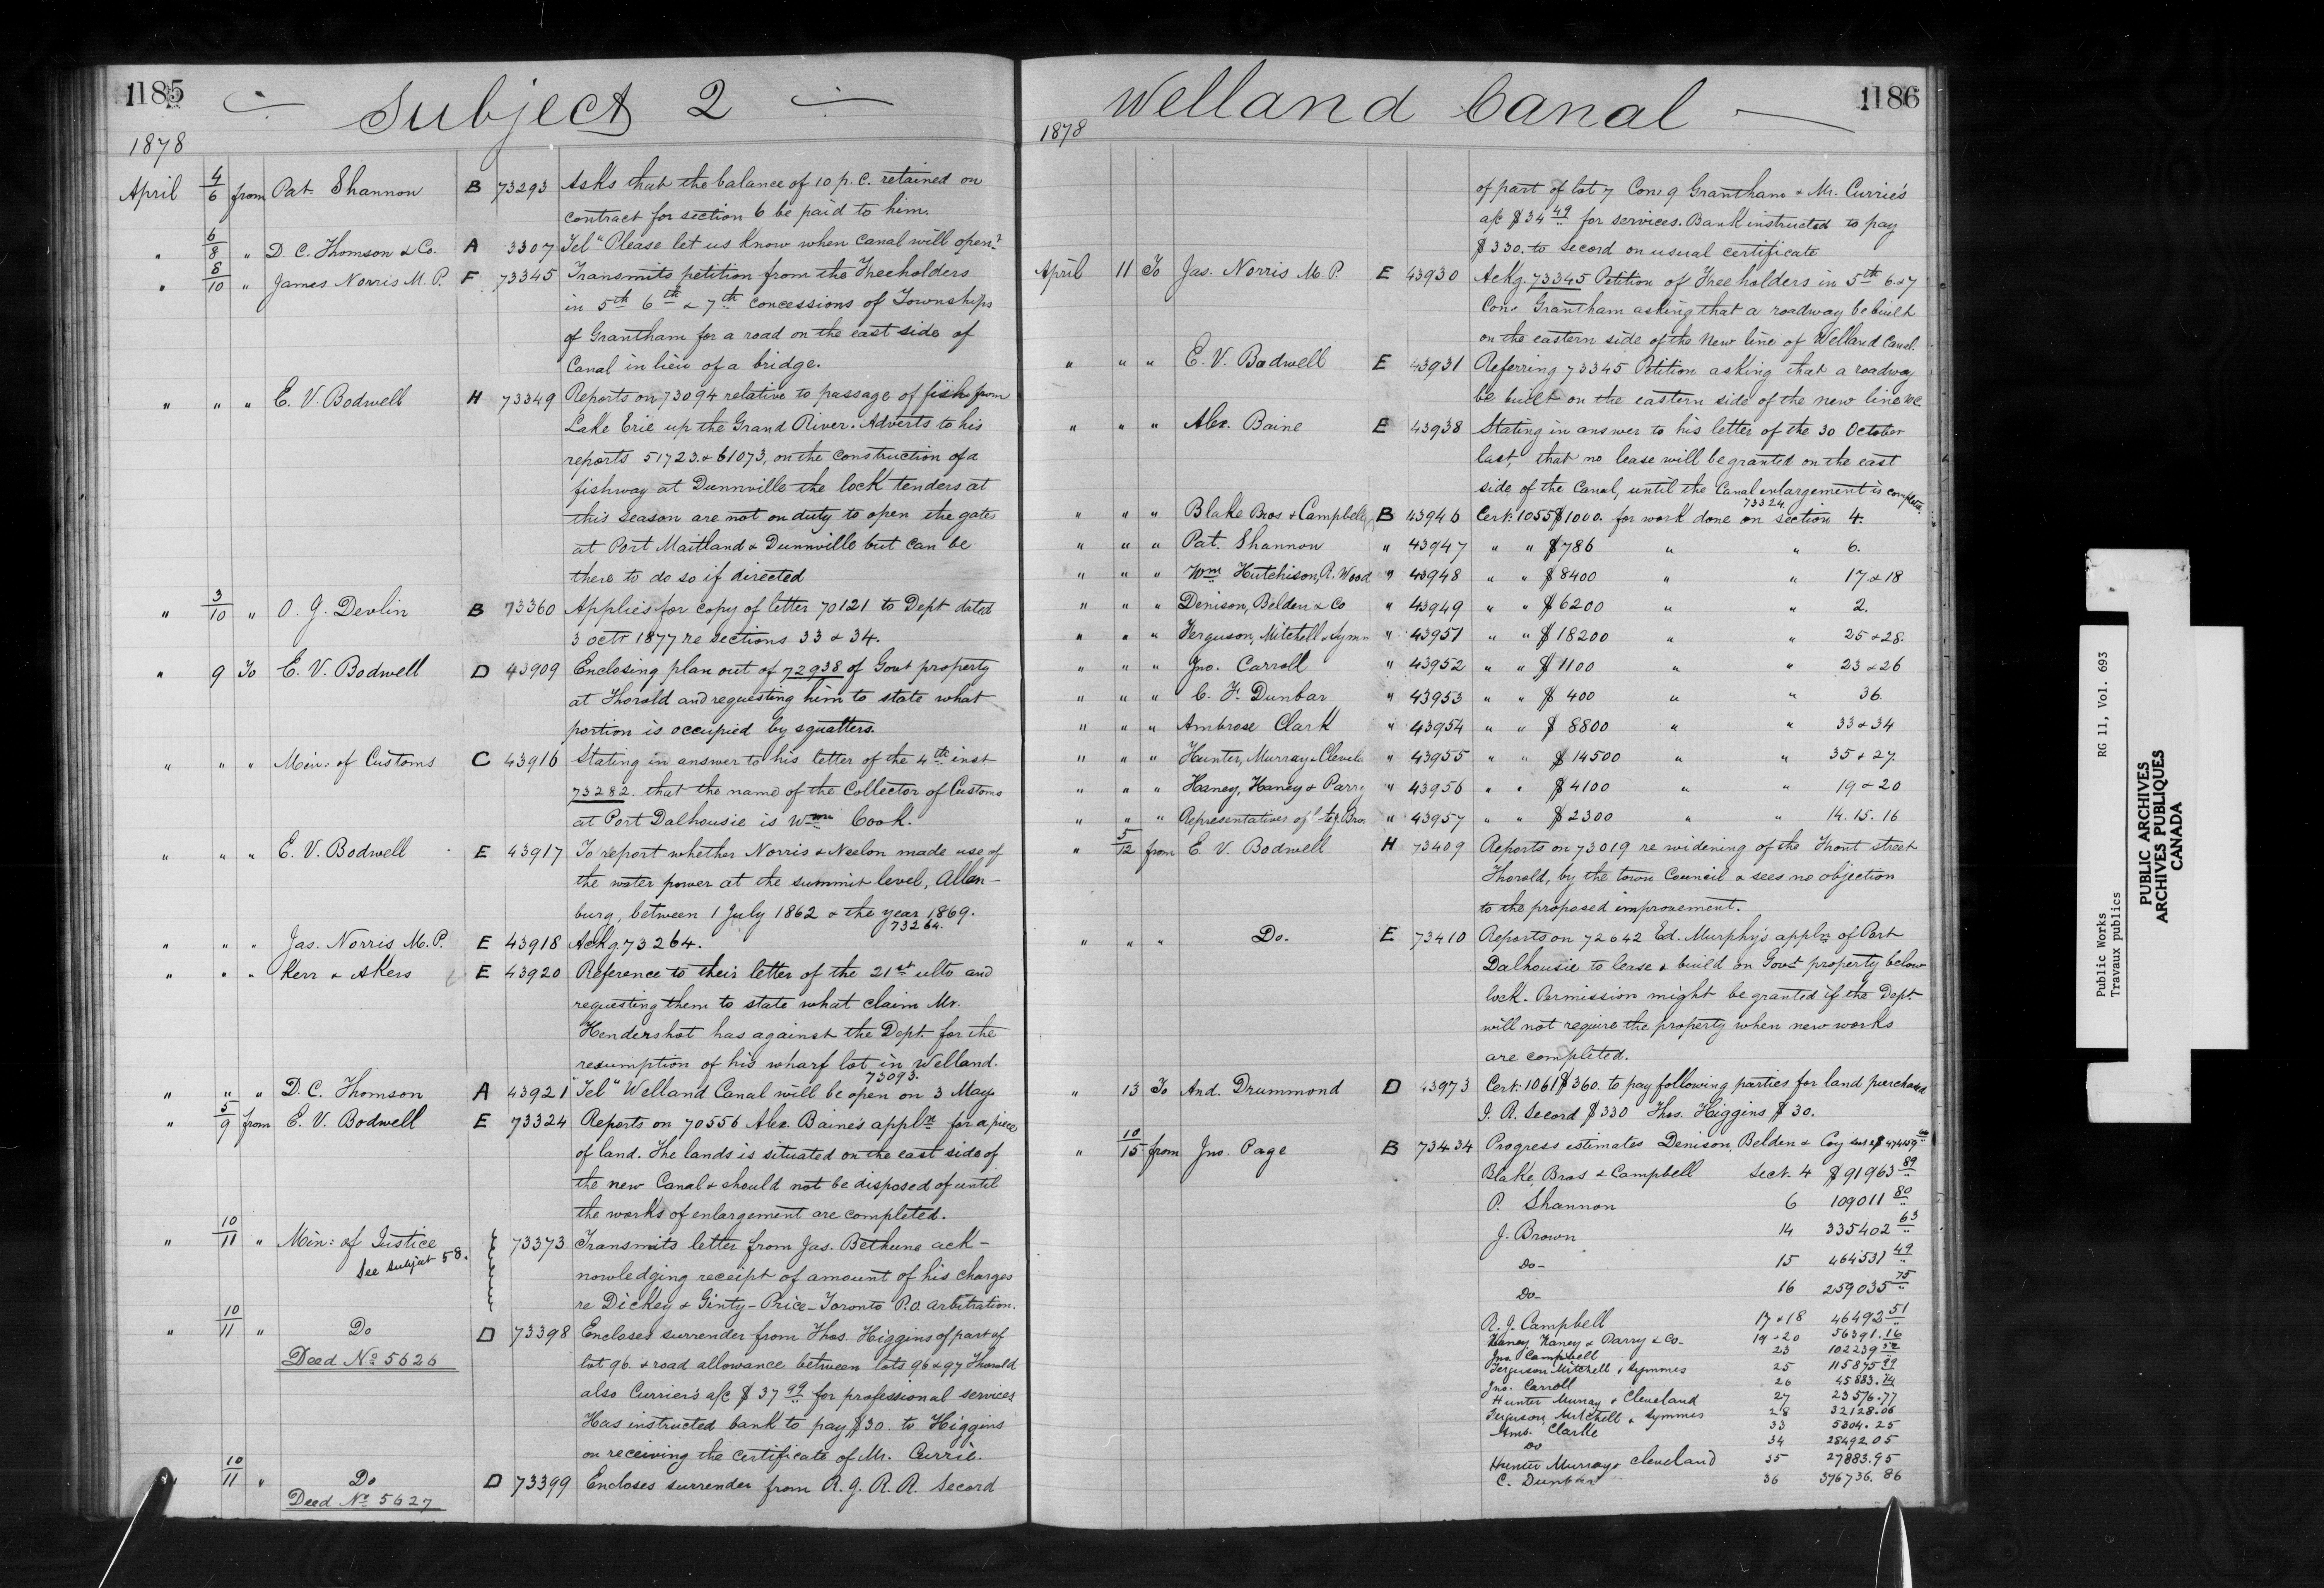 1185
Subject 2
1878
April 4/6 from Pat. Shannon B 73293 Asks that the balance of 10 p.c. retained on
contract for section 6 be paid to him.
" 6/8 " D. C. Thomson & Co. A 3307 Tel "Please let us know when Canal will open"
" 8/10 " James Norris M.P. F 73345 Transmits petition from the Freeholders
in 5th 6th & 7th concessions of Townships
of Grantham for a road on the east side of
Canal in lieu of a bridge.
" " " E. V. Bodwell H 73349 Reports on 73094 relative to passage of fish from
Lake Erie up the Grand River. Adverts to his
reports 51723. & 61073, on the construction of a
fishway at Dunnville the lock tenders at
this season are not on duty to open the gates
at Port Maitland & Dunnville but can be
there to do so if directed
" 3/10 " O. J. Devlin B 73360 Applies for copy of letter 70121 to Dept dated
3 Octr 1877 re sections 33 & 34.
" 9 To E. V. Bodwell D 43909 Enclosing plan out of 72938 of Govt property
at Thorold and requesting him to state what
portion is occupied by squatters.
" " " Min: of Customs C 43916 Stating in answer to his letter of the 4th inst
73282. that the name of the Collector of Customs
at Port Dalhousie is Wm Cook.
" " " E. V. Bodwell E 43917 To report whether Norris & Neelon made use of
the water power at the summit level, Allan-
burg, between 1 July 1862 & the year 1869.
73264.
" " " Jas. Norris M.P. E 43918 Ackg 73264.
" " " Kerr & Akers E 43920 Reference to their letter of the 21st ulto and
requesting them to state what claim Mr.
Hendershot has against the Dept. for the
resumption of his wharf lot in Welland.
73093.
" " " D. C. Thomson A 43921 "Tel" Welland Canal will be open on 3 May.
" 5/9 from E. V. Bodwell E 73324 Reports on 70556 Alex. Baine's appln for a piece
of land. The lands is situated on the east side of
the new Canal & should not be disposed of until
the works of enlargement are completed.
" 10/11 " Min: of Justice 73373 Transmits letter from Jas. Bethune ack-
See subject 58.
nowledging receipt of amount of his charges
re Dickey & Ginty - Price - Toronto P.O. arbitration.
" 10/11 " Do D 73398 Encloses surrender from Thos. Higgins of part of
Deed No 5626 lot 96 & road allowance between lots 96 & 97 Thorold
also Currier's a/c $37 99 for professional services
Has instructed bank to pay $30. to Higgins
on receiving the certificate of Mr. Currie.
" 10/11 " Do D 73399 Encloses surrender from R. J. R. R. Secord
Deed No 5627
1186
Welland Canal
1878
of part of lot 7 Con. 9 Grantham & Mr. Currie's
a/c $34 49 for services. Bank instructed to pay
$330. to Secord on usual certificate
April 11 To Jas. Norris M.P. E 43930 Ackg. 73345 Petition of Freeholders in 5th 6 & 7
Con. Grantham asking that a roadway be built
on the eastern side of the New line of Welland Canal.
" " " E. V. Bodwell E 43931 Referring 73345 Petition asking that a roadway
be built on the eastern side of the new line &c
" " " Alex. Baine E 43938 Stating in answer to his letter of the 30 October
last, that no lease will be granted on the east
side of the Canal, until the Canal enlargement is complete.
73324
" " " Blake Bros & Campbell B 43946 Cert. 1055 $1000. for work done on section 4.
" " " Pat. Shannon " 43947 " " $786 " " 6.
" " " Wm Hutchison, R. Wood " 43948 " " $8400 " " 17 & 18
" " " Denison, Belden & Co " 43949 " " $6200 " " 2.
" " " Ferguson, Mitchell & Symm " 43951 " " $18200 " " 25 & 28.
" " " Jno. Carroll " 43952 " " $1100 " " 23 & 26
" " " C. F. Dunbar " 43953 " " $400 " " 36
" " " Ambrose Clark " 43954 " " $8800 " " 33 & 34
" " " Hunter, Murray & Clevela " 43955 " " $14500 " " 35 & 27.
" " " Haney, Haney & Parry " 43956 " " $4100 " " 19 & 20
" " " Representatives of Bros " 43957 " " $2300 " " 14. 15. 16
" 5/12 from E. V. Bodwell H 73409 Reports on 73019 re widening of the Front street
Thorold, by the town Council & sees no objection
to the proposed improvement.
" " " Do- E 73410 Reports on 72642 Ed. Murphy's appln of Port
Dalhousie to lease & build on Govt property below
lock. Permission might be granted if the Dept
will not require the property when new works
are completed.
" 13 To And. Drummond D 43973 Cert: 1061 $360. to pay following parties for land purchased
J. R. Secord $330 Thos. Higgins $30.
" 10/15 from Jno. Page B 73434 Progress estimates Denison, Belden & Coy
Blake, Bros & Campbell Sect. 4 $91963 89
P. Shannon 6 109011 80
J. Brown 14 335402 63
Do- 15 464531 49
Do- 16 259035 75
R. J. Campbell 17 & 18 46492 51
Haney, Haney & Parry & Co- 19 & 20 56391.16
Jno Campbell 23 102239 52
Ferguson Mitchell & Symmes 25 115875 99
Jno. Carroll 26 45883.74
Hunter Murray & Cleveland 27 23576.77
Ferguson, Mitchell & Symmes 28 32128.06
Amb. Clarke 33 5304.25
Do 34 28492 05
Hunter Murray & Cleveland 35 27883.95
C. Dunbar 36 376736.86
Public Works RG 11, Vol. 693
Travaux publics
PUBLIC ARCHIVES
ARCHIVES PUBLIQUES
CANADA